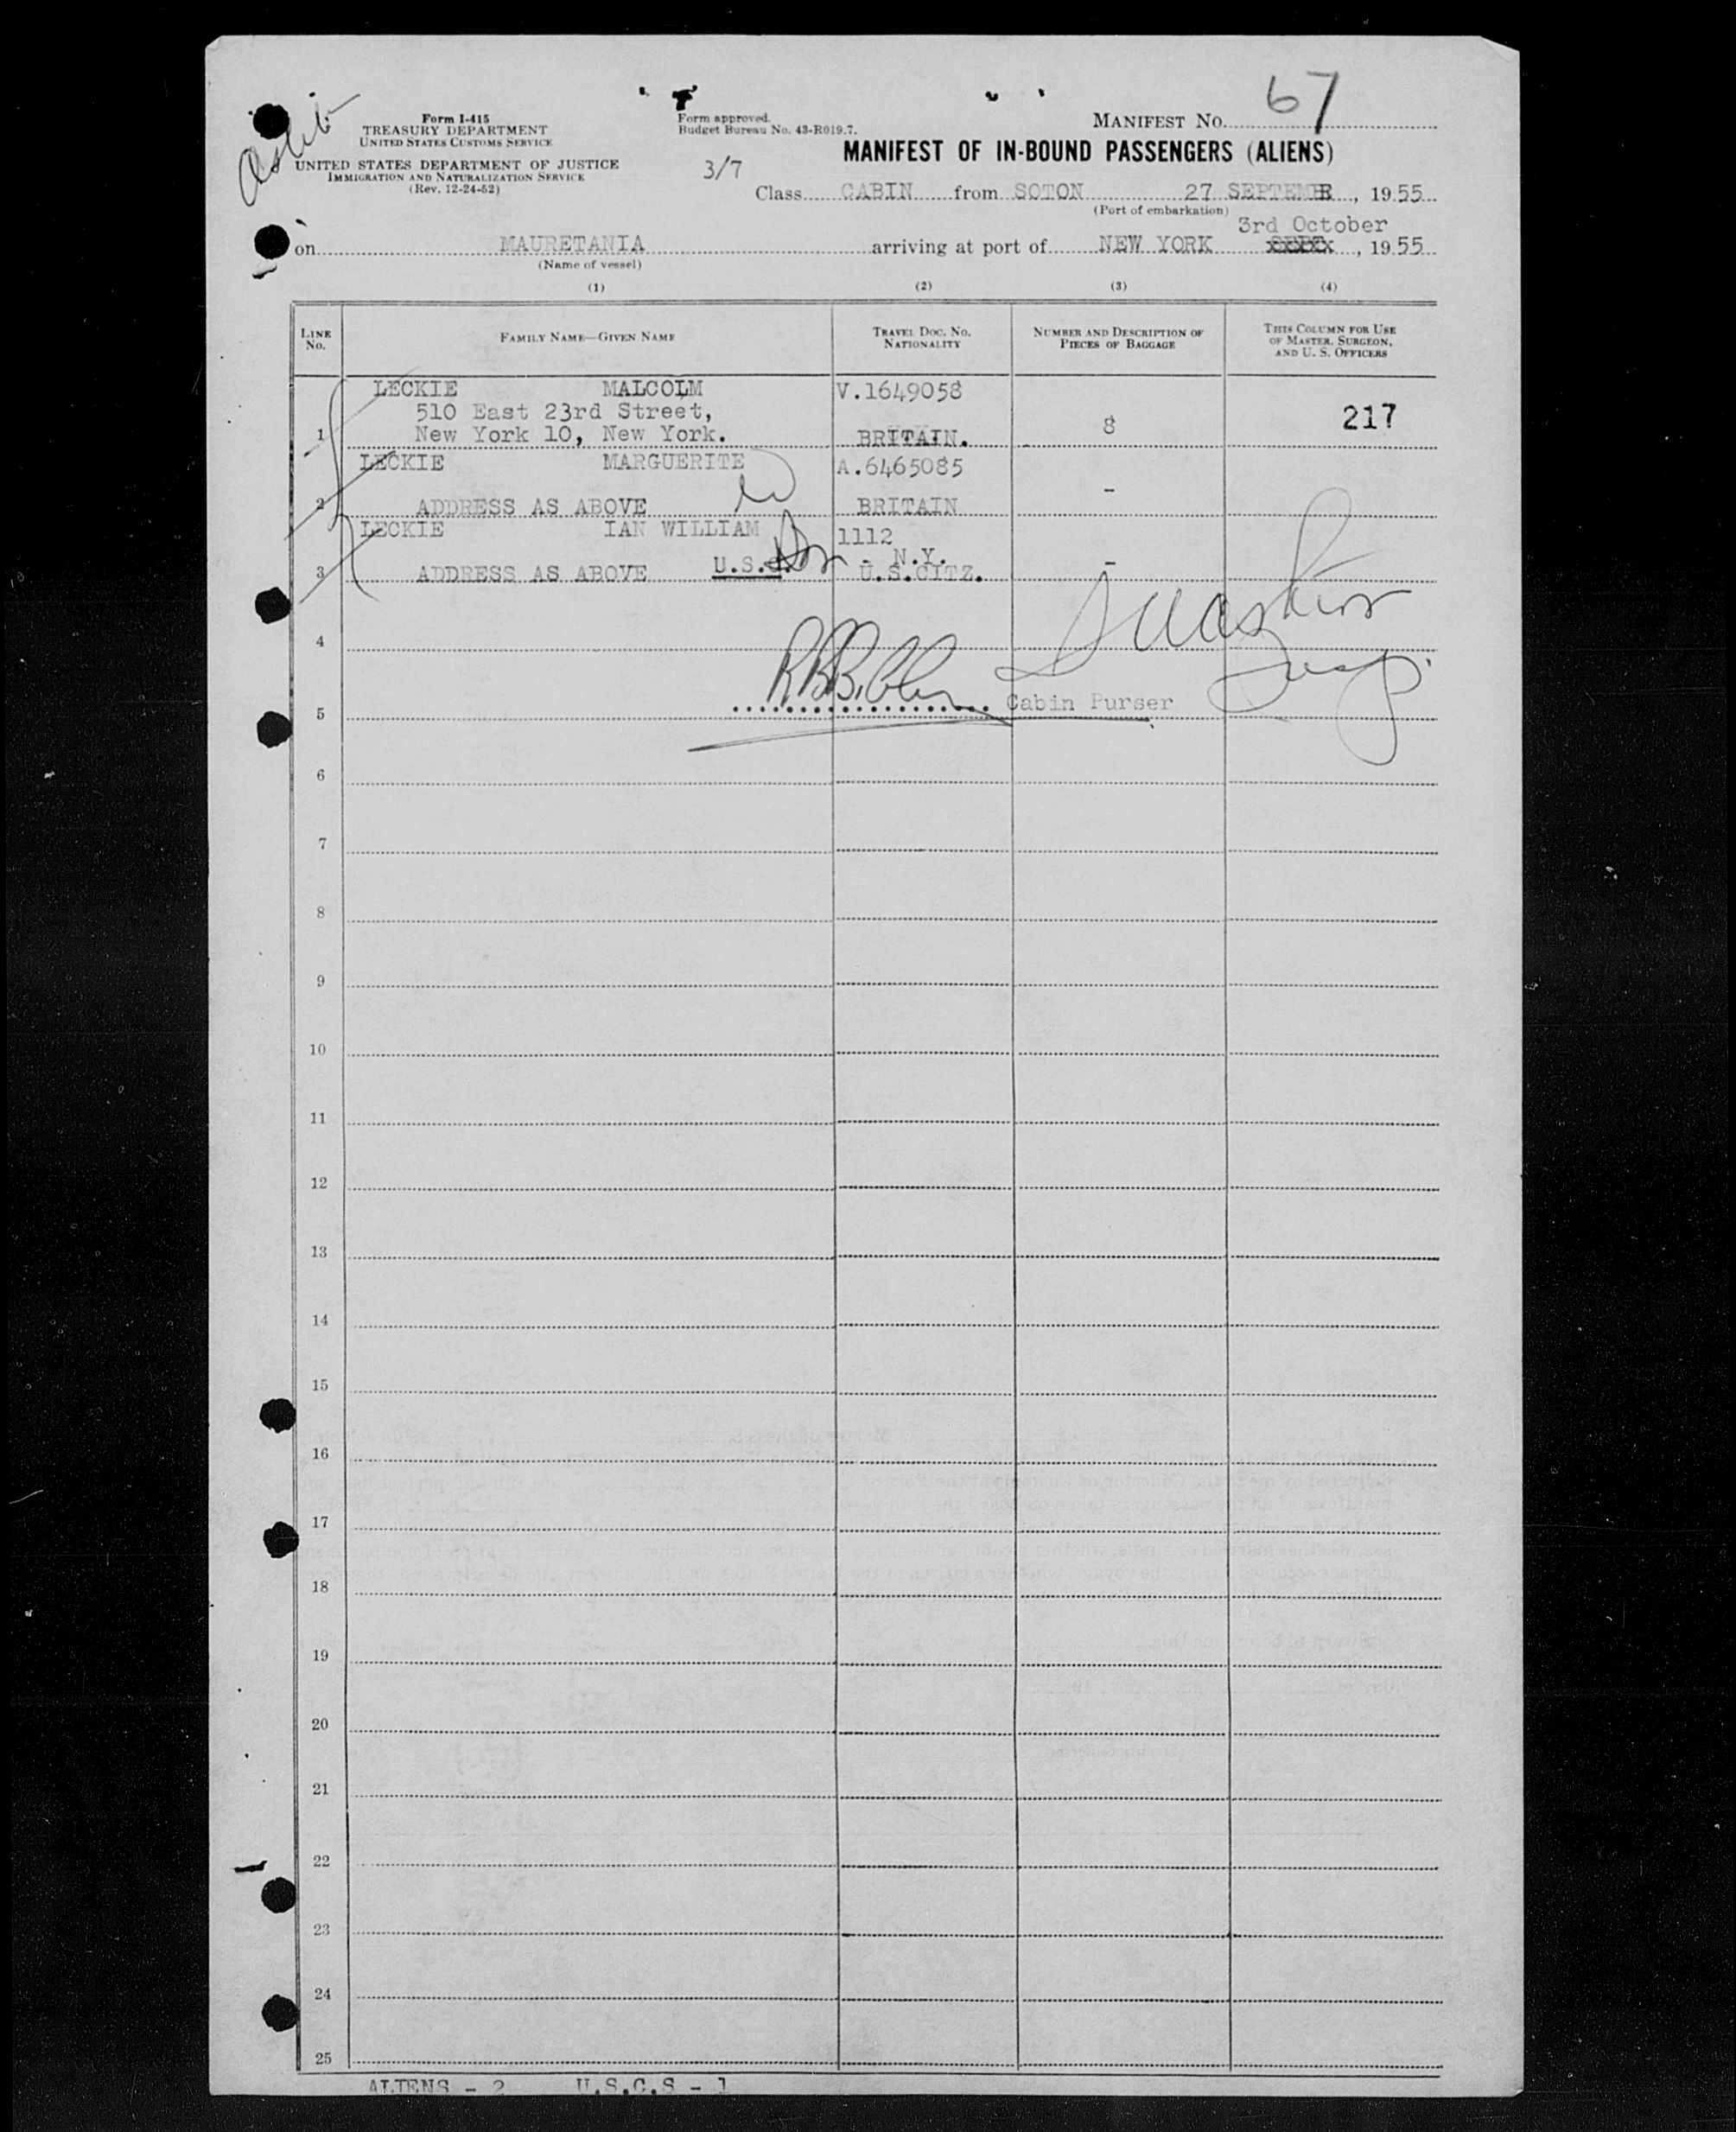 67
Form I-415
TREASURY DEPARTMENT
UNITED STATES CUSTOMS SERVICE
UNITED STATES DEPARTMENT OF JUSTICE
IMMIGRATION AND NATURALIZATION SERVICE
(Rev. 12-24-52)
Form approved.
Budget Bureau No. 43-R019.7.
MANIFEST NO.
MANIFEST OF IN-BOUND PASSENGERS (ALIENS)
3/7
Class CABIN from SOTON 27 SEPTEMBR, 1955
(Port of embarkation)
3rd October
on MAURETANIA arriving at port of NEW YORK, 1955
(Name of vessel)
(1) (2) (3) (4)
LINE NO.
FAMILY NAME—GIVEN NAME
TRAVEL DOC. NO. NATIONALITY
NUMBER AND DESCRIPTION OF PIECES OF BAGGAGE
THIS COLUMN FOR USE OF MASTER, SURGEON, AND U. S. OFFICERS
LECKIE MALCOLM V.1649058
510 East 23rd Street,
1 New York 10, New York. BRITAIN. 8 217
LECKIE MARGUERITE A.6465085
2 ADDRESS AS ABOVE BRITAIN -
LECKIE IAN WILLIAM 1112
- N.Y.
3 ADDRESS AS ABOVE U.S.C. U.S.CITZ. -
4
5 Cabin Purser
6
7
8
9
10
11
12
13
14
15
16
17
18
19
20
21
22
23
24
25
ALIENS - 2 U.S.C.S - 1